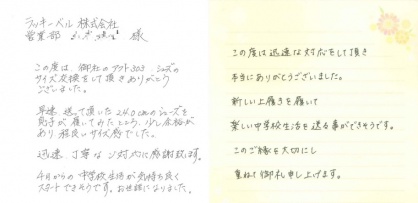 ラッキーベル株式会社
営業部 様
この度は、御社のアクト303 シューズの
サイズ交換をして頂きありがとう
ございました。
早速、送って頂いた24.0cmのシューズを
息子が履いてみたところ、少し余裕が
あり 程良いサイズ感でした。
迅速、丁寧なご対応に感謝致します。
4月からの中学校生活が気持ち良く
スタートできそうです。お世話になりました。
この度は迅速な対応をして頂き
本当にありがとうございました。
新しい上履きを履いて
楽しい中学校生活を送る事ができそうです。
このご縁を大切にし
重ねて御礼申し上げます。